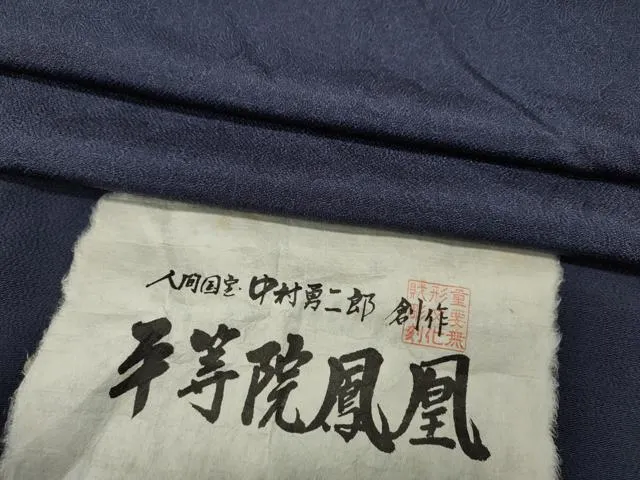 人间国宝 中村勇二郎 創作
平等院鳳凰
重要無
形文化
財 刻